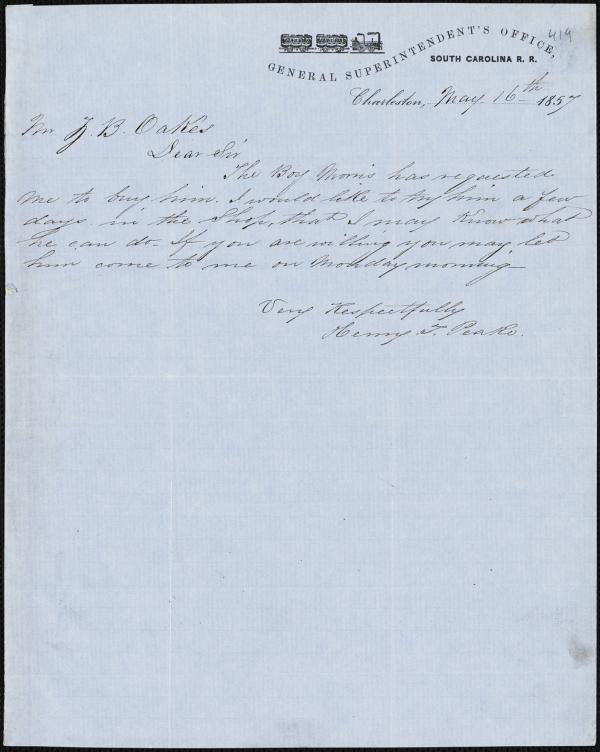 419
GENERAL SUPERINTENDENT'S OFFICE,
SOUTH CAROLINA R. R.
Charleston, May 16th 1857
Mr Z. B. Oakes
Dear Sir
The Boy Morris has requested
me to buy him. I would like to try him a few
days in the Shop, that I may Know what
he can do. If you are willing you may let
him come to me on Monday morning
Very Respectfully
Henry T. Peake.